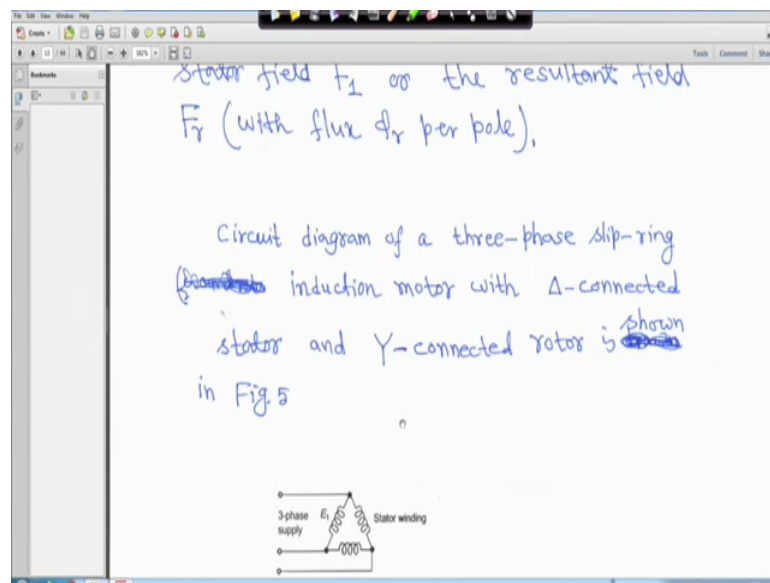 File Edit View Window Help
Create
13 / 64
182%
Tools Comment
Bookmarks
stator field F1 or the resultant field
Fr (with flux φr per pole).
Circuit diagram of a three-phase slip-ring
induction motor with Δ-connected
stator and Y-connected rotor is shown
in Fig. 5
3-phase E1 Stator winding
supply